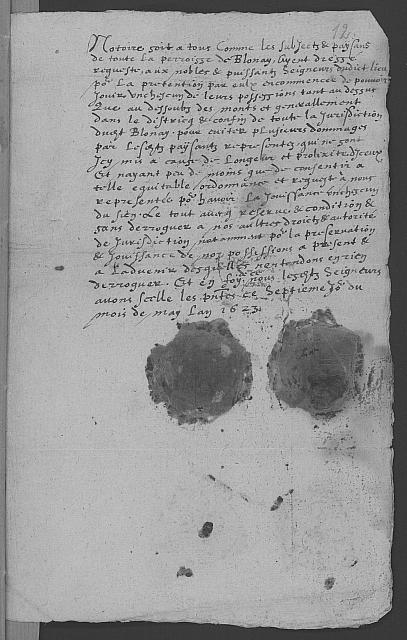 12
Notoire soit a tous Comme les subjects & paysans
de toute la perroisse de Blonay, ayent dressé
requeste, aux nobles & puissants Seigneurs dudict lieu
po.r La pretention par eulx encommencee de pouvoir
Jouir Unchescun de leurs possessions tant au dessus
que au dessoubs des monts et generallement
dans le districq & confin de toute la Jurisdiction
dudit Blonay, pour eviter plusieurs dommages
par lesdits paysants representez, qui ne sont
Icy mis a cause de Longeur et prolixité d'iceux
Et nayant peu de moins que de consentir a
telle equitable ordonnance et requeste a nous
representée po.r havoir La Jouissance Unchescun
du sien. Le tout avecq reserve & condition &
sans derroguer a nos aultres droicts & autorité
de Jurisdiction notamment po.r la preservation
& Jouissance de noz possessions a present &
a Ladvenir desquelles nentendons en rien
derroguer. Et en foy nous lesdits Seigneurs
avons scelle les pntes ce Septieme Jo.r du
mois de may Lan 1623